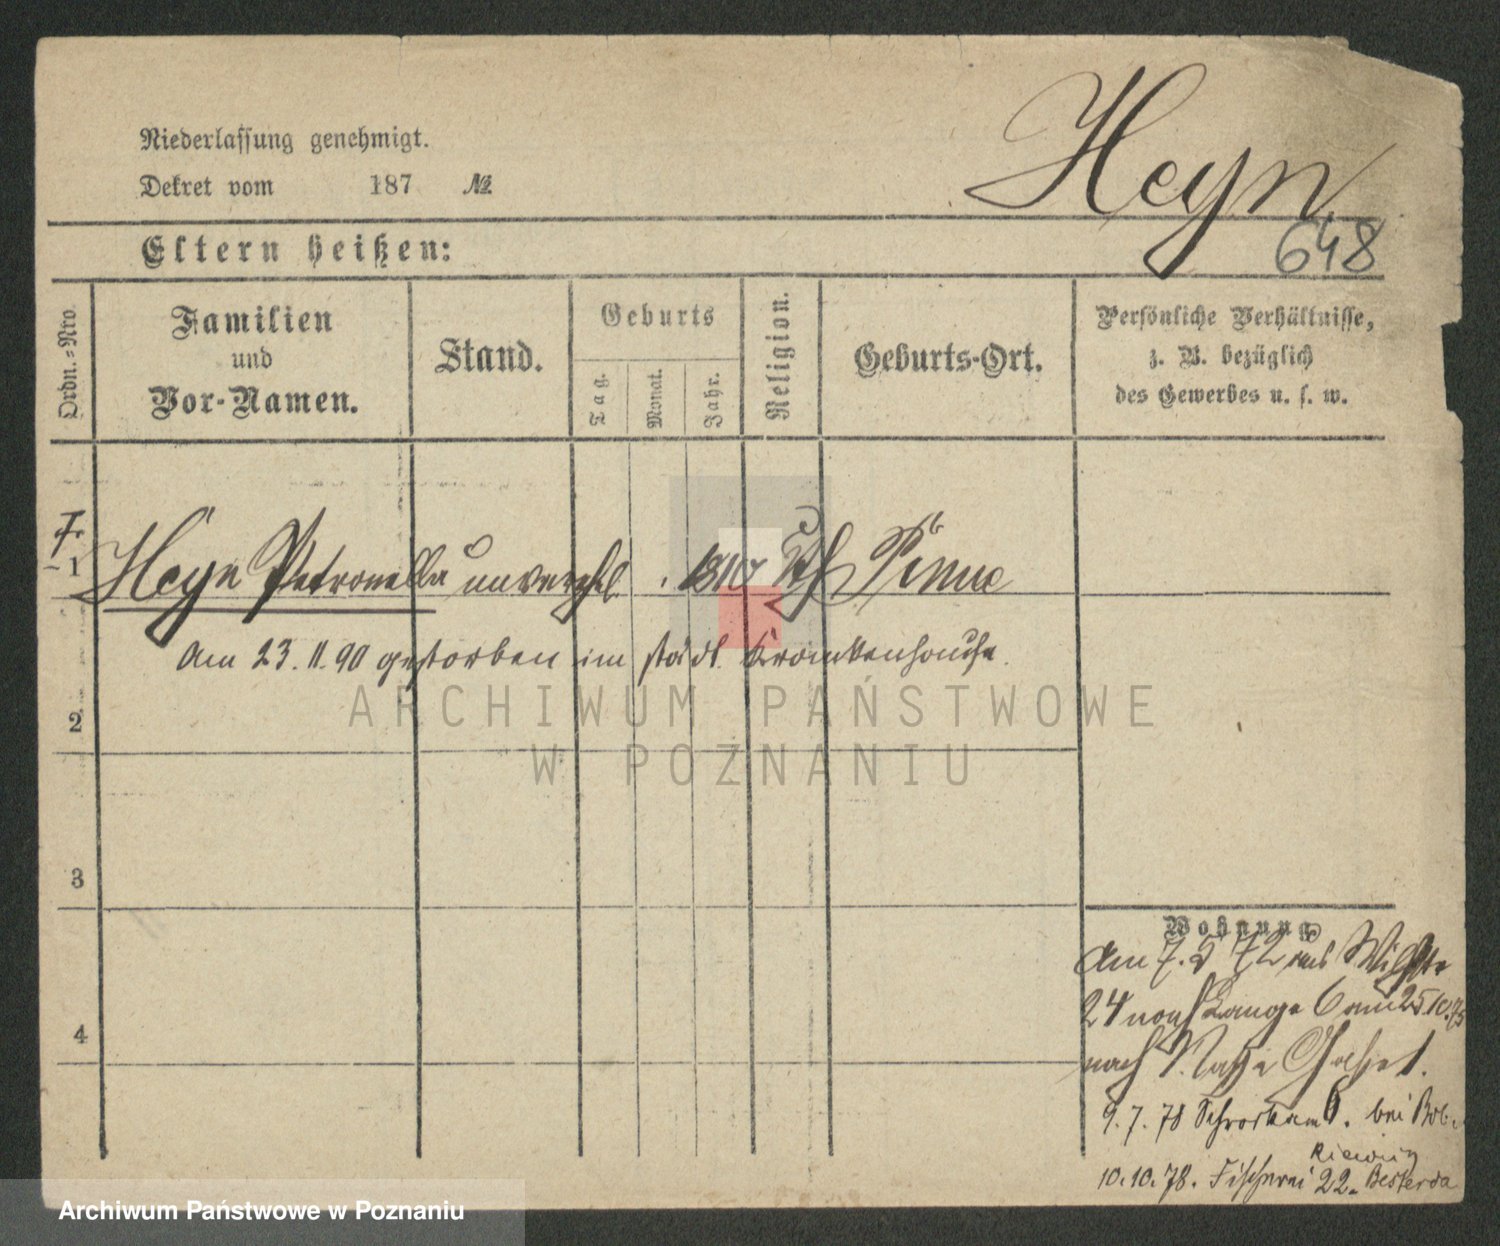 Heyn
Niederlassung genehmigt.
Dekret vom 187 №
648
Eltern heißen:
Ordn.=Nro.
Familien
und
Vor-Namen.
Stand.
Geburts
Tag.
Monat.
Jahr.
Religion.
Geburts-Ort.
Persönliche Verhältnisse,
z. B. bezüglich
des Gewerbes u. s. w.
1 Heyn Petronella unverehel. 1810 Kth Pinne
Am 23.11.90 gestorben im städt. Krankenhause.
2
3
4
Wohnung
Am 7.5 72 aus
24 nach Lange 6 am 25.10.75
nach
9.7.78 Schrodkam 6. bei
10.10.78. Fischerei 22.
ARCHIWUM PAŃSTWOWE
W POZNANIU
Archiwum Państwowe w Poznaniu